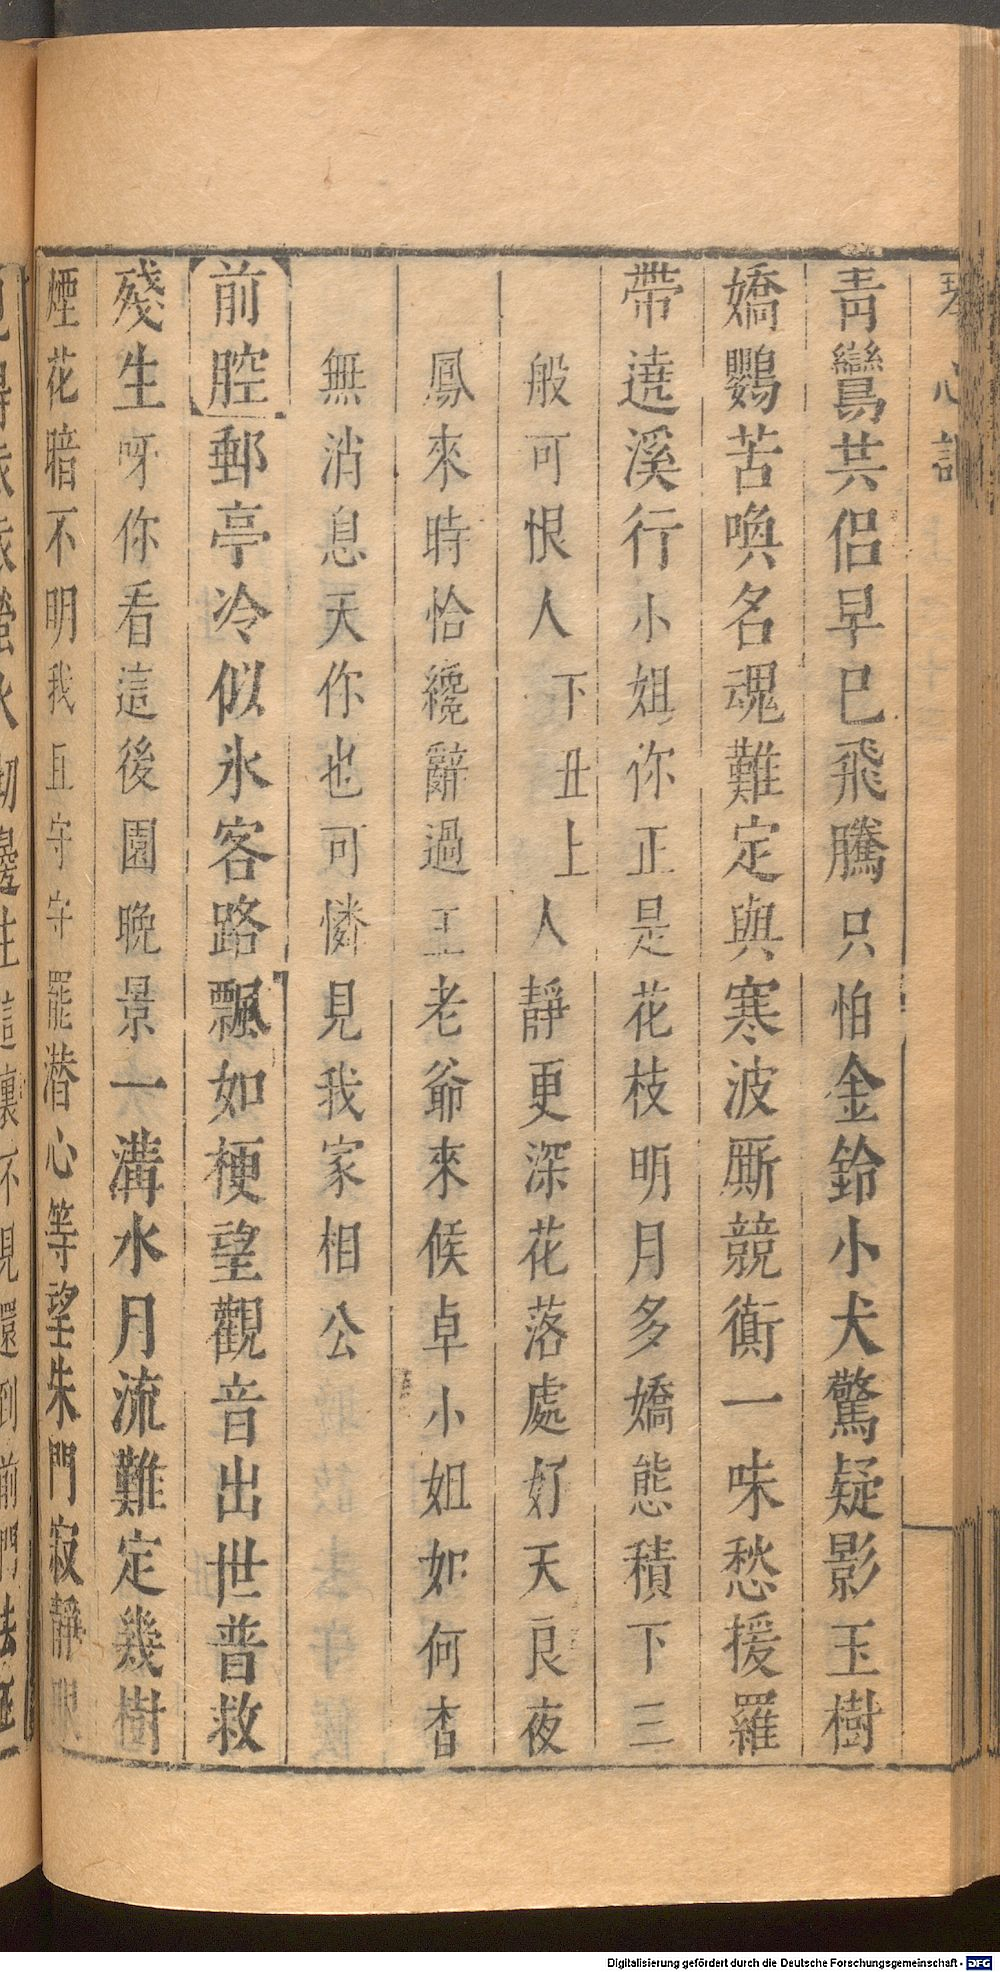 琴心記
靑鸞共侶早已飛騰只怕金鈴小犬驚疑影玉樹
嬌鸚苦喚名魂難定與寒波厮競衡一味愁援羅
帶遶溪行小姐你正是花枝明月多嬌態積下三
般可恨人下丑上人靜更深花落處好天良夜
鳳來時恰纔辭過王老爺來候卓小姐如何杳
無消息天你也可憐見我家相公
前腔郵亭冷似氷客路飄如梗望觀音出世普救
殘生呀你看這後園晩景一溝水月流難定幾樹
煙花暗不明我且守守罷潛心等望朱門寂靜
這裏不見還到前門去
Digitalisierung gefördert durch die Deutsche Forschungsgemeinschaft - DFG